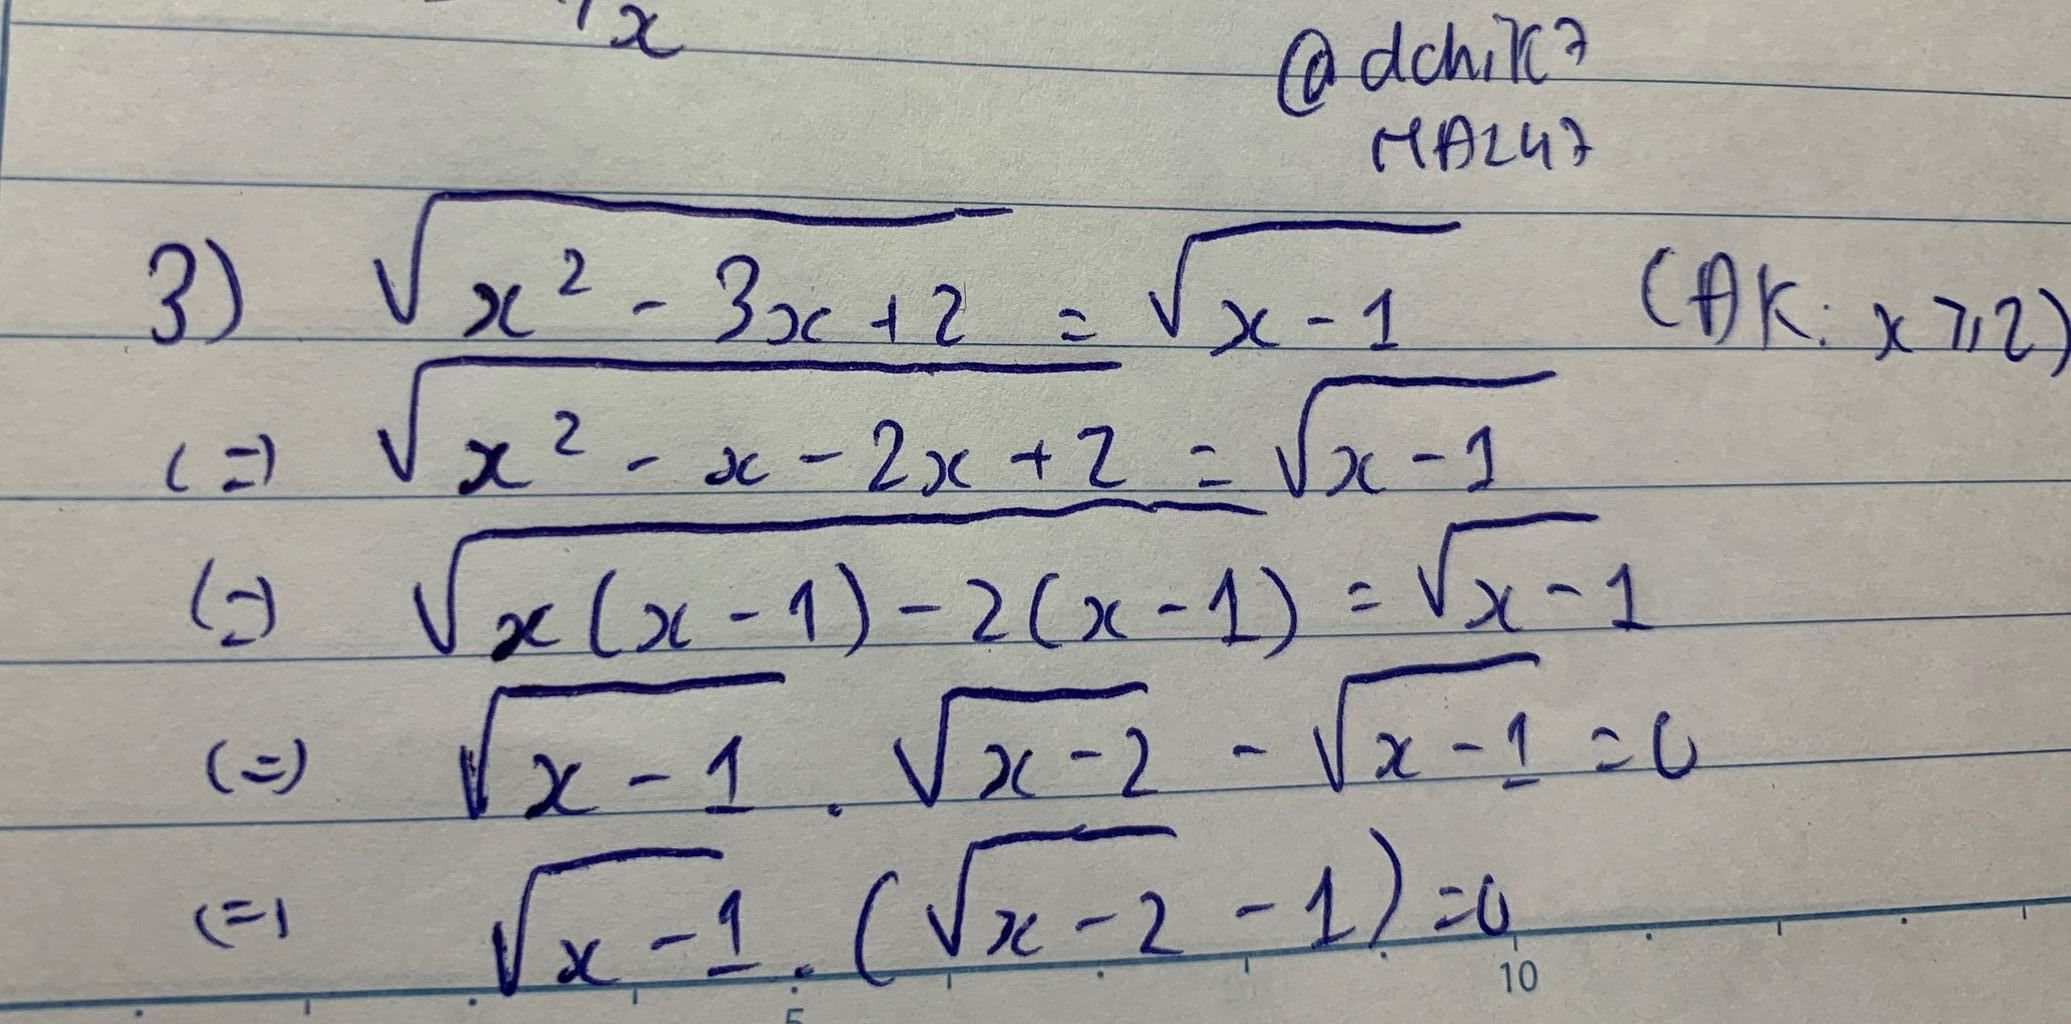 x
@dchik7
MA247
3) √(x² - 3x + 2) = √(x - 1) (ĐK: x ⩾ 2)
(=) √(x² - x - 2x + 2) = √(x - 1)
(=) √(x(x - 1) - 2(x - 1)) = √(x - 1)
(=) √(x - 1) . √(x - 2) - √(x - 1) = 0
(=) √(x - 1) . (√(x - 2) - 1) = 0
10
5